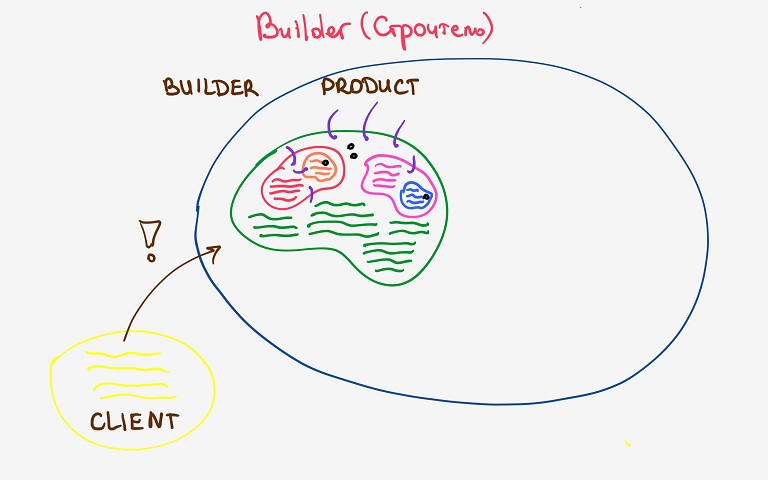 Builder (Строитель)
BUILDER PRODUCT
!
CLIENT